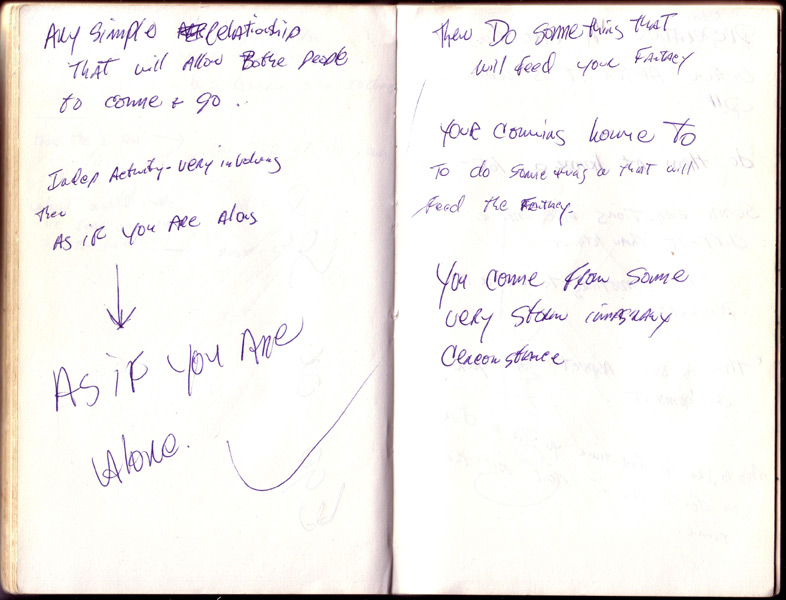 Any simple Relationship
That will Allow Bothe people
to come + go.
Indep Activity - very involving
then
As if you Are Alone
As if you Are
Alone.
then Do something that
will feed your Fantacy
Your Coming home To
To do something a that will
feed the Fantacy.
You come from some
very storm imaginary
Cerconstance